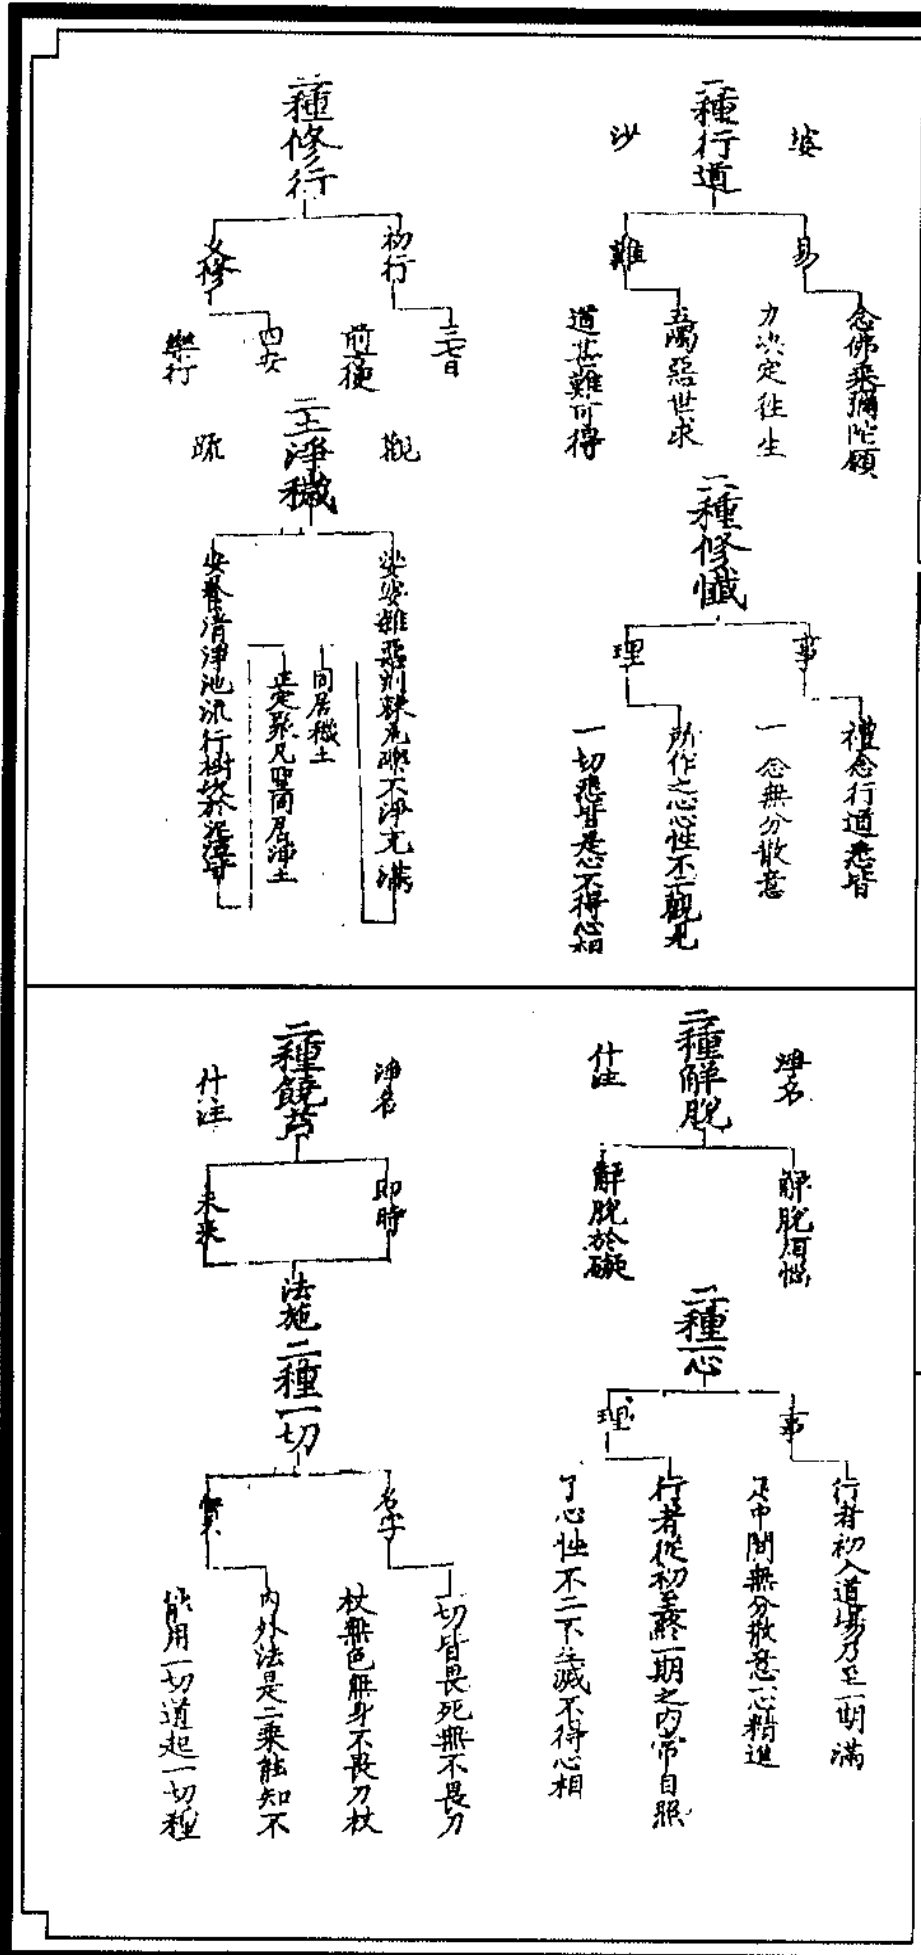 二種行道
婆
沙
易
念佛乘彌陀願
力決定往生
難
五濁惡世求
道甚難可得
二種修懺
事
禮念行道悉皆
一念無分散意
理
所作之心心性不二觀見
一切悉皆是心不得心相
二種修行
初行
三七日
前方便
久修
四安
樂行
二土淨穢
觀
疏
娑婆雜惡荊棘瓦礫不淨充滿
同居穢土
安養清淨池流行樹
正定聚凡聖同居淨土
二種解脫
淨名
什注
解脫煩惱
解脫於礙
二種一心
事
行者初入道場乃至一期滿
足中間無分散意一心精進
理
行者從初至終一期之內常自照
了心性不二不生滅不得心相
二種饒益
淨名
什注
即時
未來
法施
二種一切
名字
一切皆畏死無不畏刀
杖無色無身不畏刀杖
實
內外法是二乘能知不
能用一切道起一切種